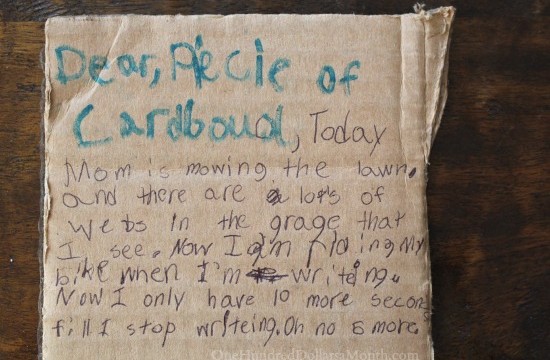 Dear, Piecie of
Cardboud, Today
Mom is mowing the lawn.
and there are a lots of
webs in the grage that
I see. Now I am riding My
bike when I'm writeing.
Now I only have 10 more secons
till I stop writeing. Oh no 5 more
OneHundredDollarsaMonth.com